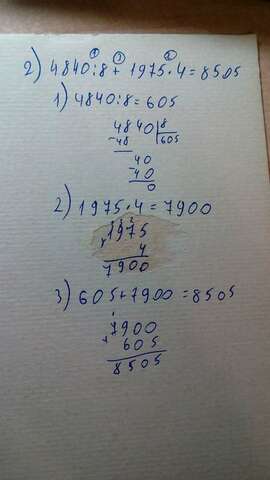 ① ③ ②
2) 4840:8 + 1975·4=8505
1) 4840:8=605
4840 8
-48 605
40
-40
0
2) 1975·4=7900
3 2 2
1975
× 4
7900
3) 605+7900=8505
1
7900
+ 605
8505